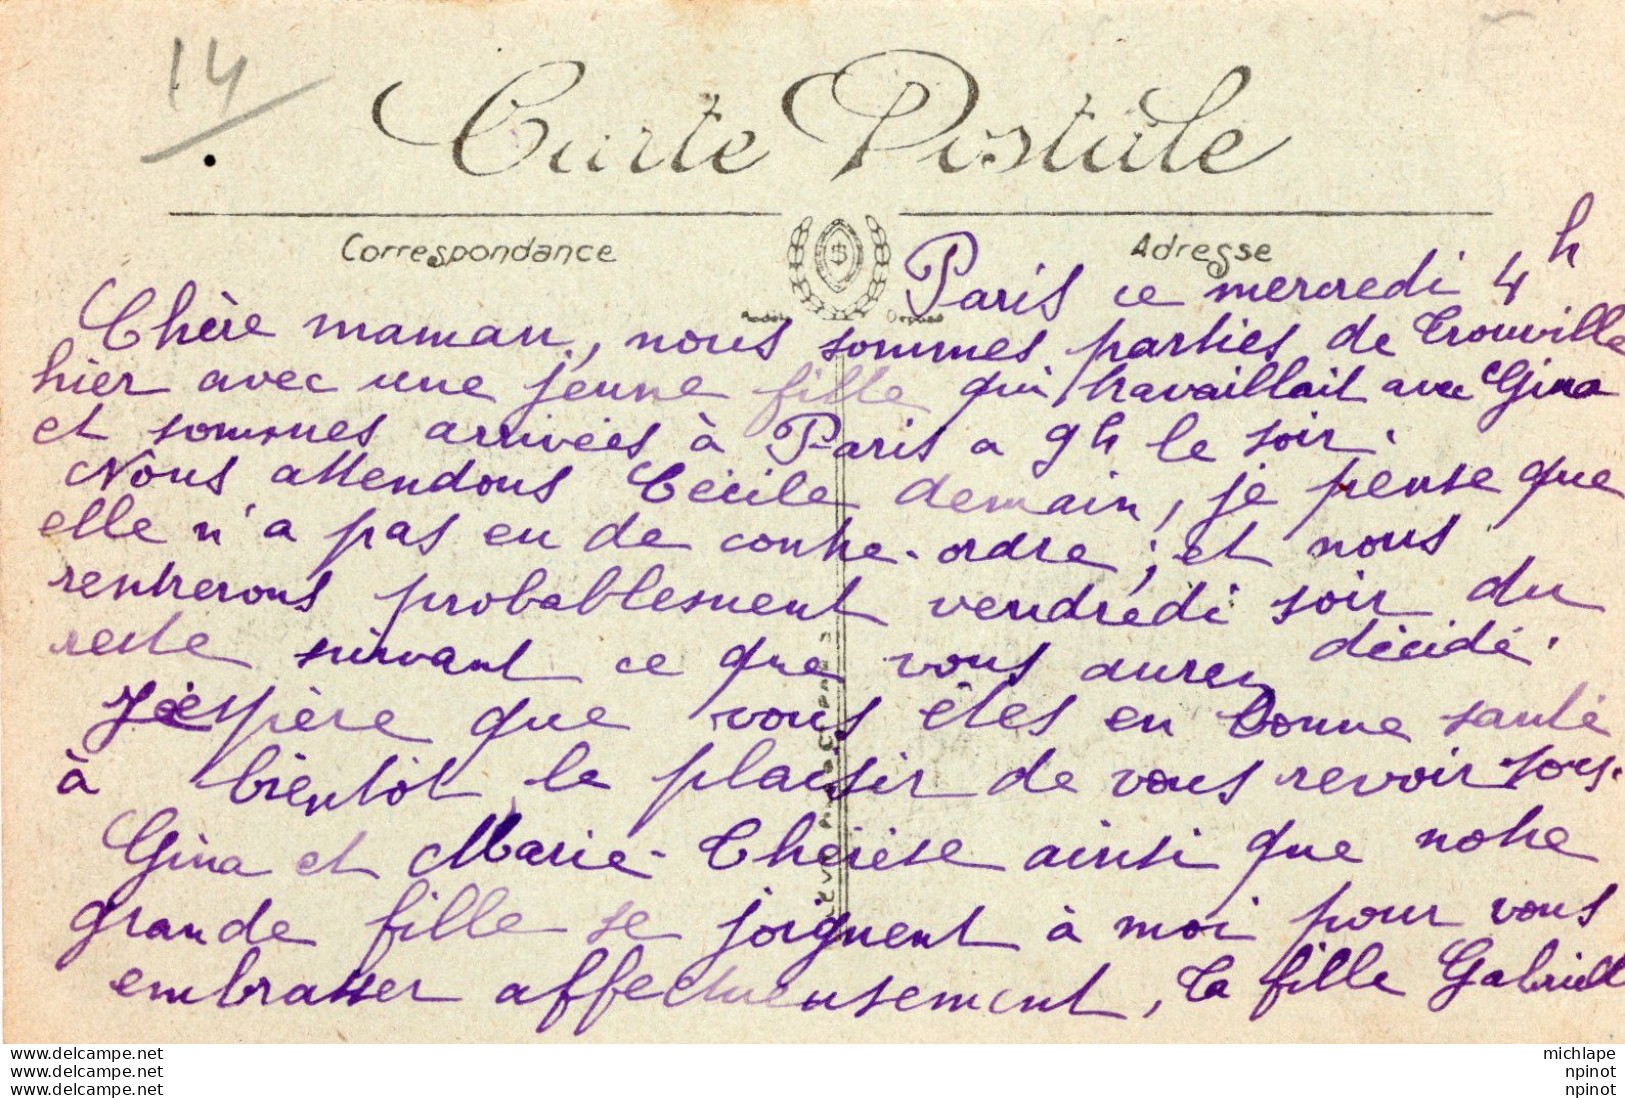 14
Carte Postale
Correspondance
Adresse
Paris ce mercredi 4h
Chère maman, nous sommes parties de Trouville
hier avec une jeune fille qui travaillait avec Gina
et sommes arrivées à Paris a 9h le soir.
Nous attendons Cécile demain, je pense que
elle n'a pas eu de contre-ordre ; et nous
rentrerons probablement vendredi soir du
reste suivant ce que vous aurez décidé.
J'espère que vous êtes en bonne santé
à bientôt le plaisir de vous revoir tous.
Gina et Marie-Thérèse ainsi que notre
grande fille se joignent à moi pour vous
embrasser affectueusement, ta fille Gabrielle
www.delcampe.net
www.delcampe.net
www.delcampe.net
michlape
npinot
npinot